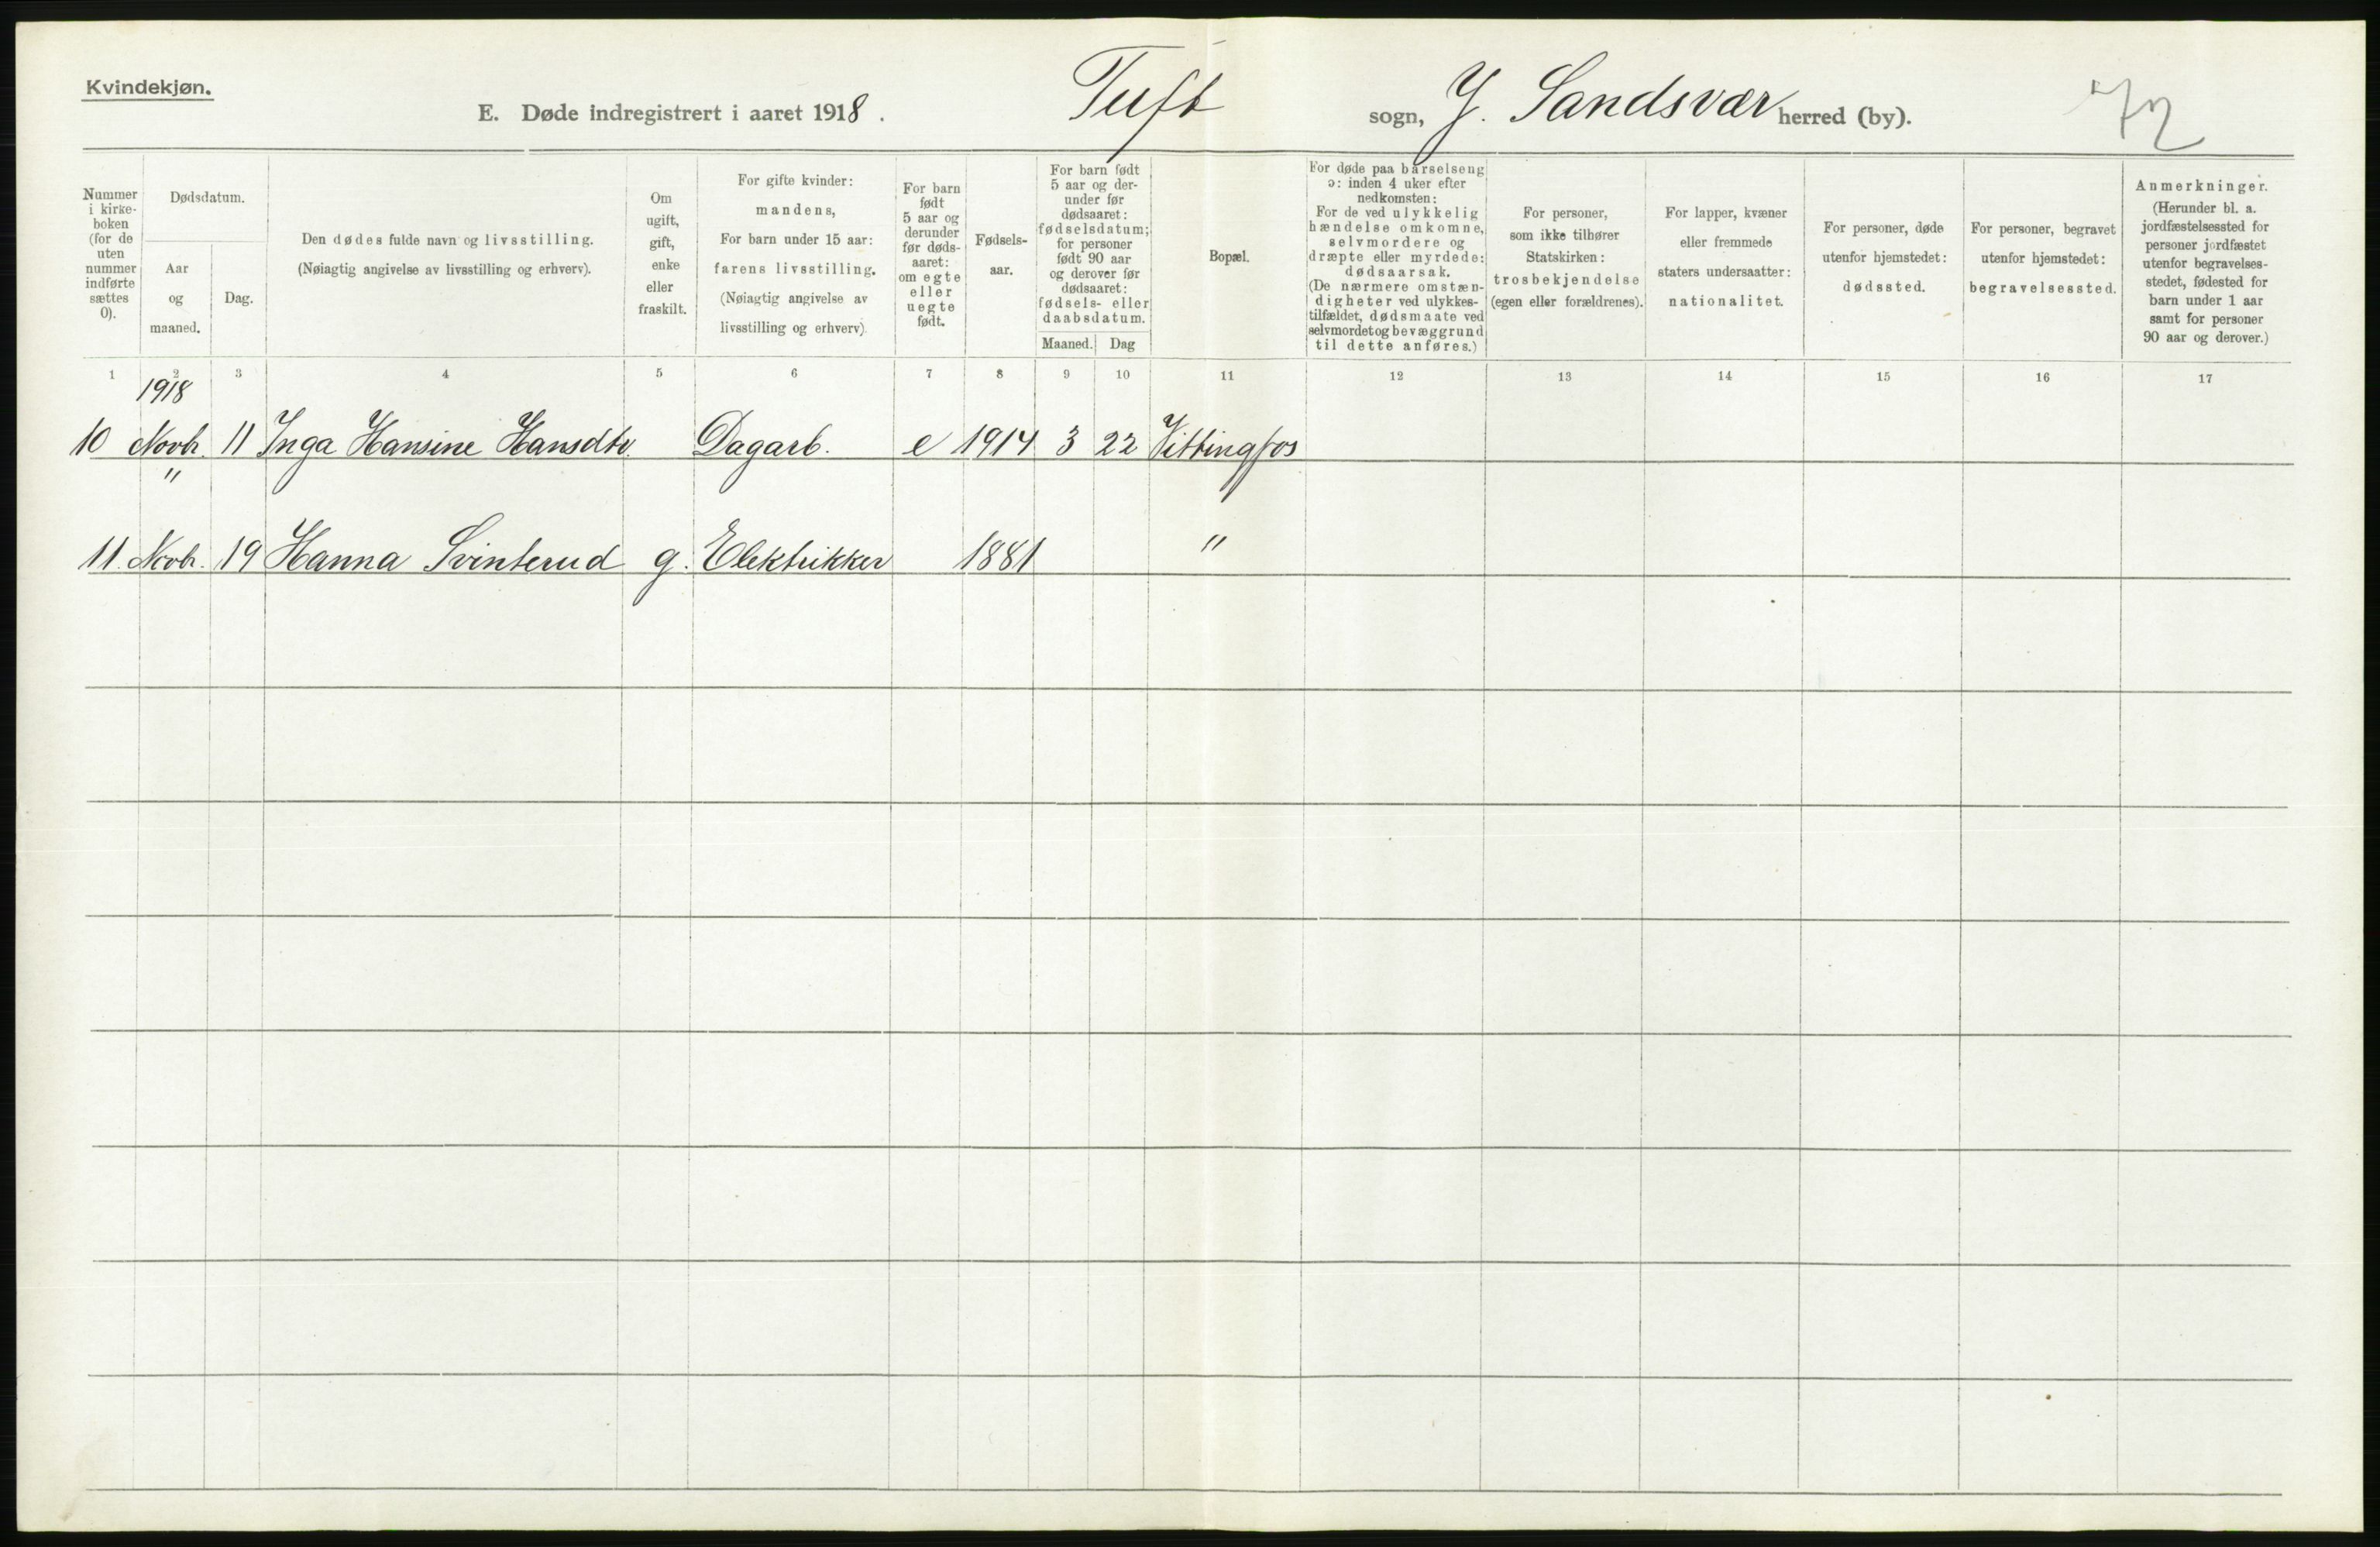 Kvindekjøn.
E. Døde indregistrert i aaret 1918. Tuft sogn, Y. Sandsvær herred (by). 72
Nummer i kirke-boken (for de uten nummer indførte sættes 0).
Dødsdatum.
Aar og maaned.
Dag.
Den dødes fulde navn og livsstilling.
(Nøiagtig angivelse av livsstilling og erhverv).
Om ugift, gift, enke eller fraskilt.
For gifte kvinder: mandens,
For barn under 15 aar: farens livsstilling.
(Nøiagtig angivelse av livsstilling og erhverv).
For barn født 5 aar og derunder før døds-aaret: om egte eller uegte født.
Fødsels-aar.
For barn født 5 aar og der-under før dødsaaret: fødselsdatum; for personer født 90 aar og derover før dødsaaret: fødsels- eller daabsdatum.
Maaned. Dag
Bopæl.
For døde paa barselseng ɔ: inden 4 uker efter nedkomsten:
For de ved ulykkelig hændelse omkomne, selvmordere og dræpte eller myrdede: dødsaarsak.
(De nærmere omstæn-digheter ved ulykkes-tilfældet, dødsmaate ved selvmordet og bevæggrund til dette anføres.)
For personer, som ikke tilhører Statskirken: trosbekjendelse (egen eller forældrenes).
For lapper, kvæner eller fremmede staters undersaatter: nationalitet.
For personer, døde utenfor hjemstedet: dødssted.
For personer, begravet utenfor hjemstedet: begravelsessted.
Anmerkninger.
(Herunder bl. a. jordfæstelsessted for personer jordfæstet utenfor begravelses-stedet, fødested for barn under 1 aar samt for personer 90 aar og derover.)
1 2 3 4 5 6 7 8 9 10 11 12 13 14 15 16 17
1918
10 Novb. 11 Inga Hansine Hansdtr. Dagarb. e 1914 3 22 Vittingfos
"
11. Novb. 19 Hanna Svinterud g. Elektrikker 1881 "